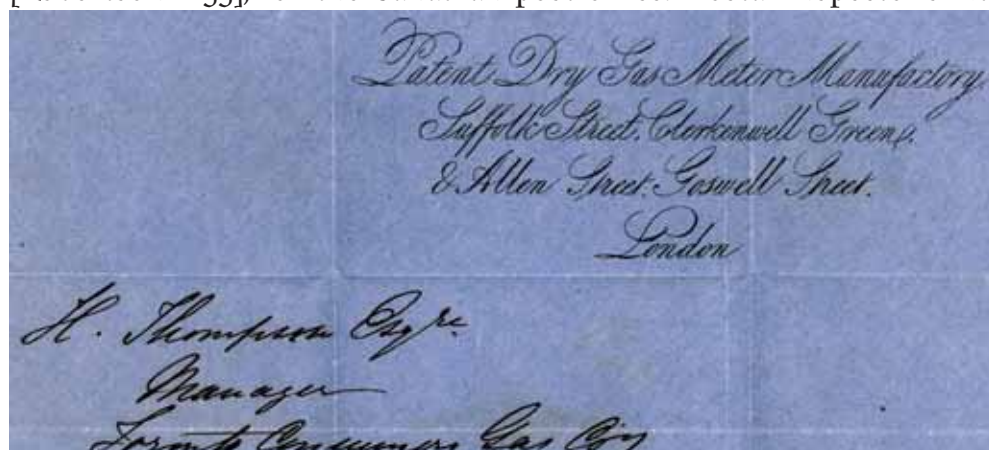 Patent Dry Gas Meter Manufactory.
Suffolk Street. Clerkenwell Green,
& Allen Street. Goswell Street.
London
H. Thompson Esqre.
Manager
Toronto Consumers Gas Coy